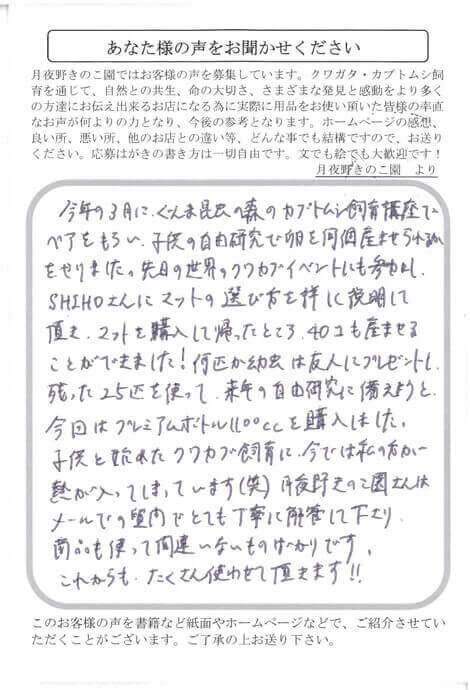 あなた様の声をお聞かせください
月夜野きのこ園ではお客様の声を募集しています。クワガタ・カブトムシ飼
育を通じて、自然との共生、命の大切さ、さまざまな発見と感動をより多く
の方達にお伝え出来るお店になる為に実際に用品をお使い頂いた皆様の率直
なお声が何よりの力となり、今後の参考となります。ホームページの感想、
良い所、悪い所、他のお店との違い等、どんな事でも結構ですので、お送り
ください。応募はがきの書き方は一切自由です。文でも絵でも大歓迎です！
月夜野きのこ園　より
今年の3月に、ぐんま昆虫の森のカブトムシ飼育講座で
ペアをもらい、子供の自由研究で卵を何個産ませられるか
をやりました。先日の世界のクワカブイベントにも参加し、
SHIHOさんにマットの選び方を詳しく説明して
頂き、マットを購入して帰ったところ、40コも産ませる
ことができました！何匹か幼虫は友人にプレゼントし、
残った25匹を使って、来年の自由研究に備えようと、
今回はプレミアムボトル1100ccを購入しました。
子供と始めたクワカブ飼育に、今では私の方が
熱が入ってしまっています(笑)月夜野きのこ園さんは
メールでの質問でとても丁寧に解答して下さり、
商品も使って間違いないものばかりです。
これからも、たくさん使わせて頂きます!!
このお客様の声を書籍など紙面やホームページなどで、ご紹介させてい
ただくことがございます。ご了承の上お送り下さい。